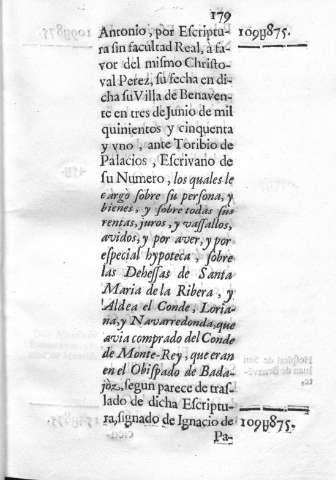 179
Antonio, por Escriptu- 109ɥ875.
ra sin facultad Real, à fa-
vor del mismo Christo-
val Perez, su fecha en di-
cha su Villa de Benaven-
te en tres de Junio de mil
quinientos y cinquenta
y vno, ante Toribio de
Palacios, Escrivano de
su Numero, los quales le
cargò sobre su persona, y
bienes, y sobre todas sus
rentas, juros, y vassallos,
avidos, y por aver, y por
especial hypoteca, sobre
las Dehessas de Santa
Maria de la Ribera, y
Aldea el Conde, Loria-
na, y Navarredonda, que
avia comprado del Conde
de Monte-Rey, que eran
en el Obispado de Bada-
joz, segun parece de tras-
lado de dicha Escriptu-
ra, signado de Ignacio de 109ɥ875.
Pa-